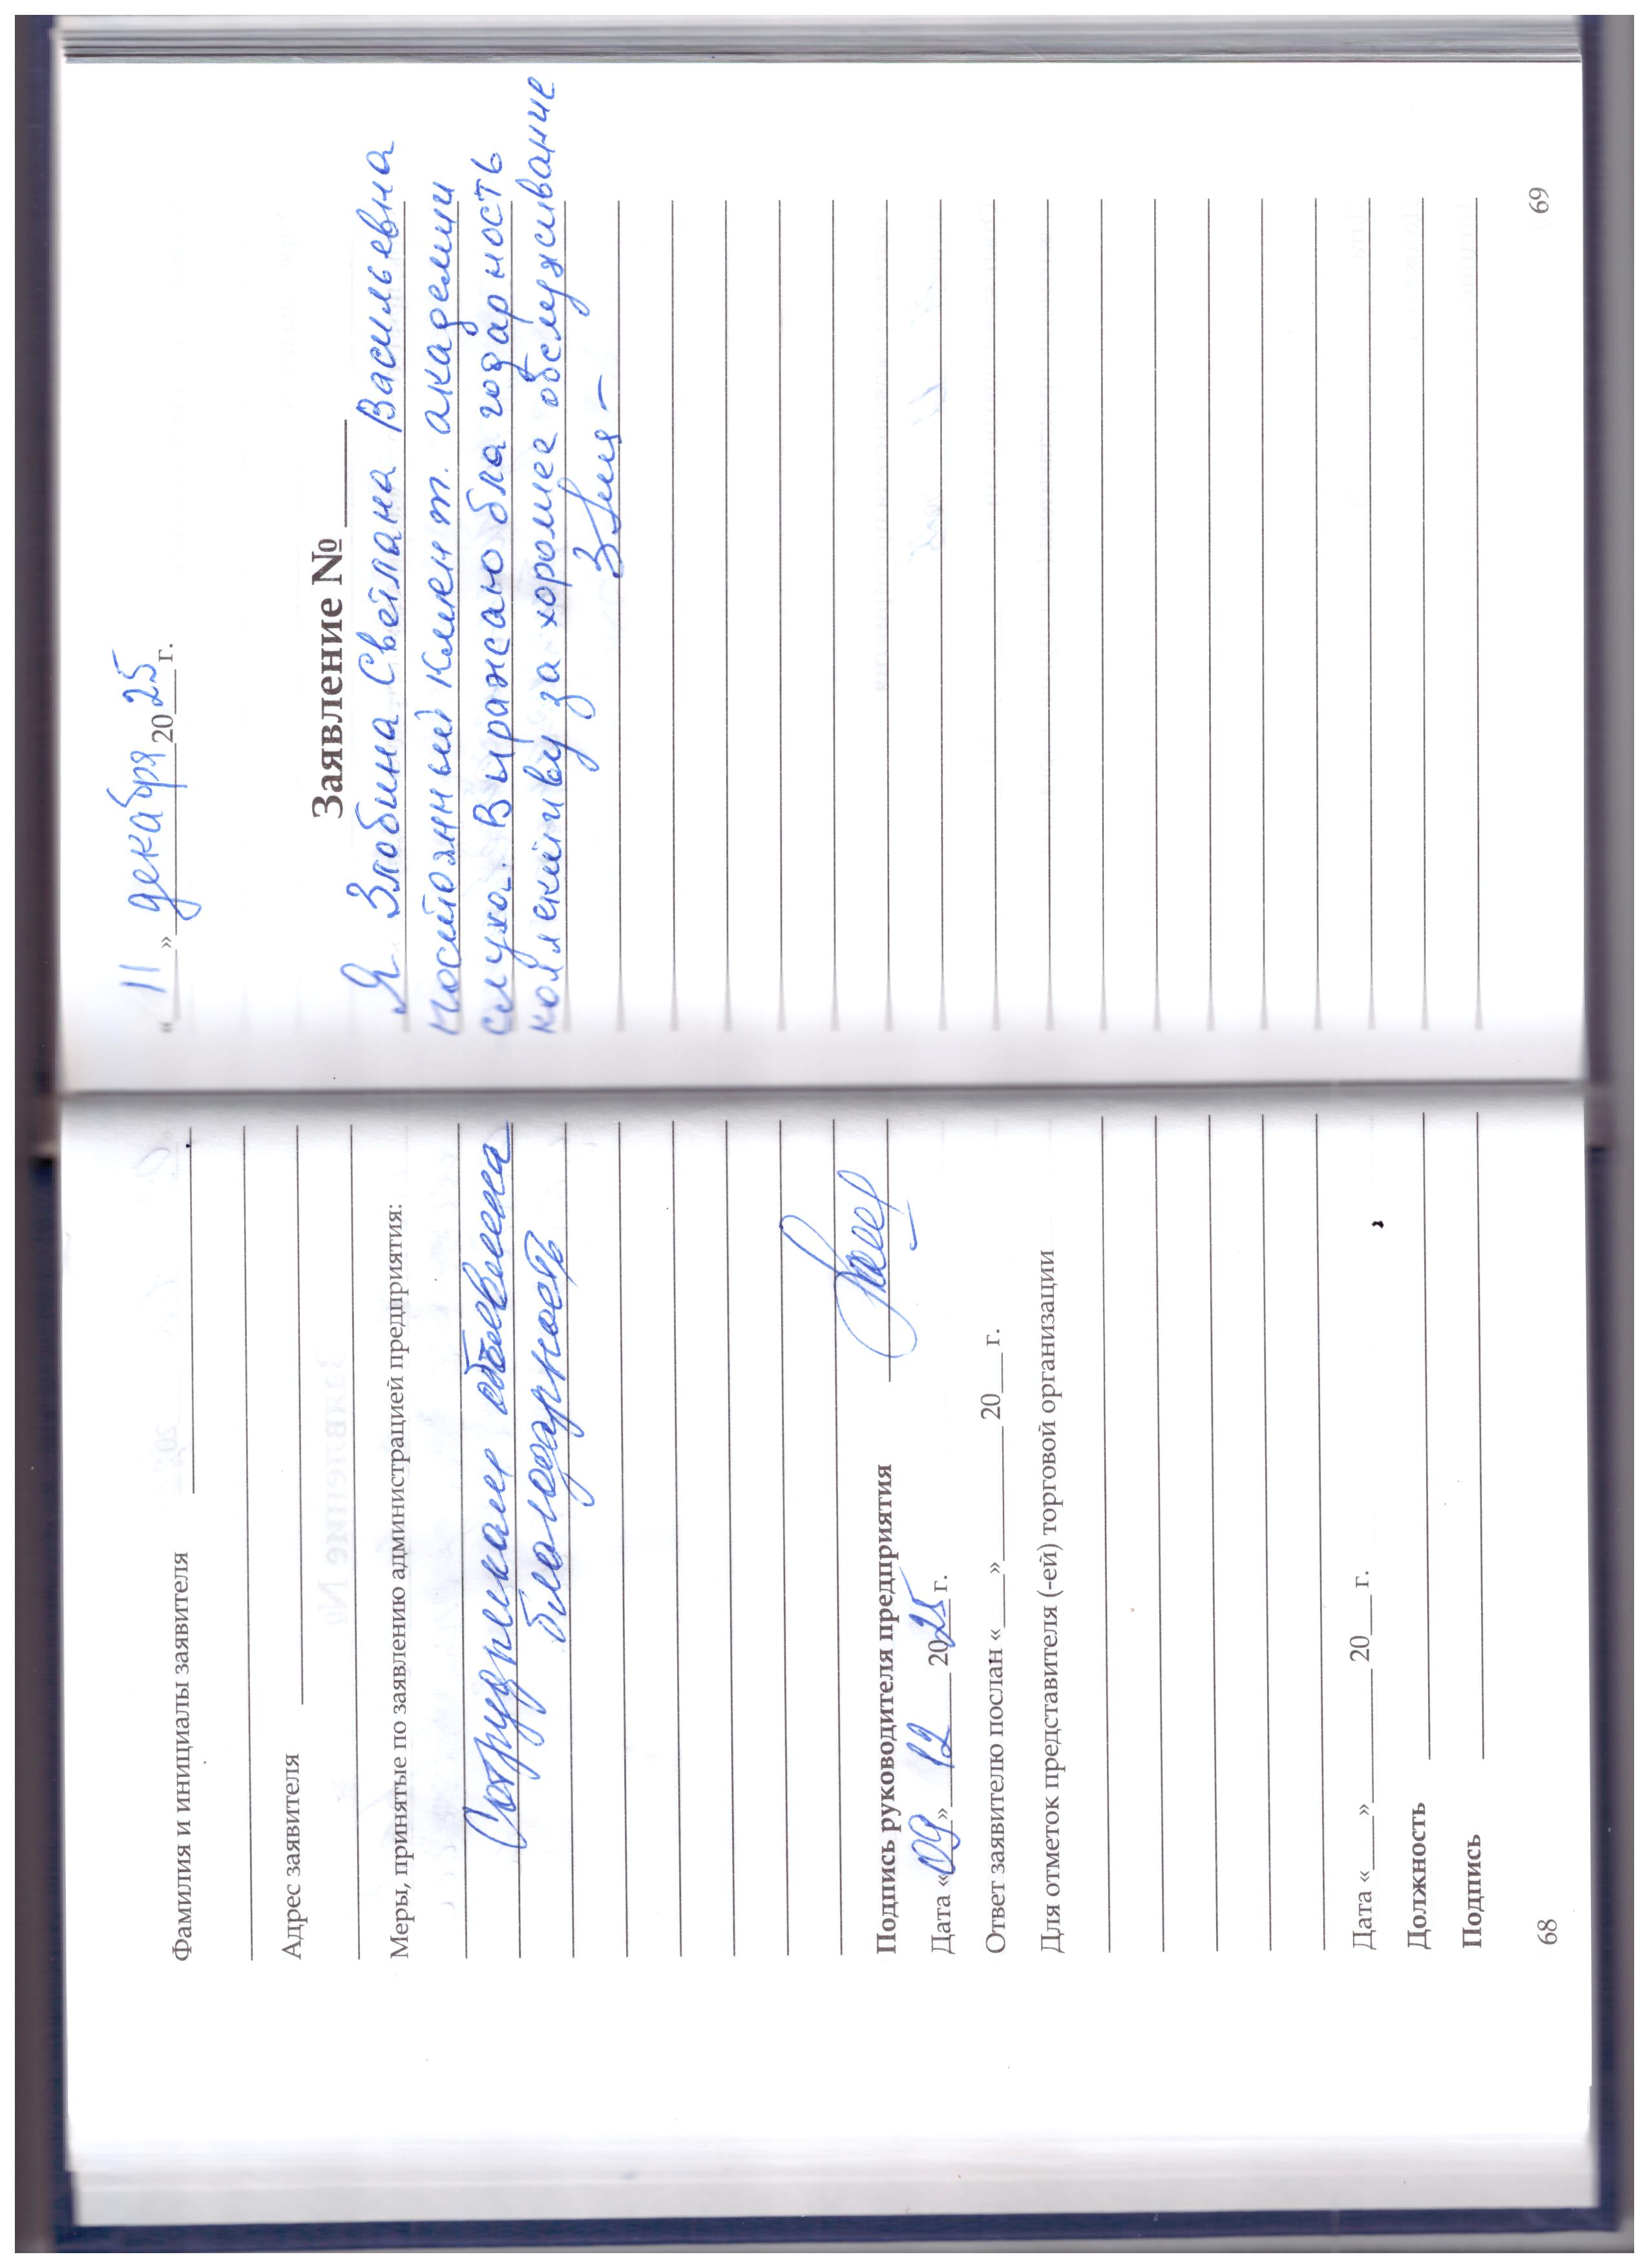 Фамилия и инициалы заявителя
Адрес заявителя
Меры, принятые по заявлению администрацией предприятия:
Сотрудникам объявлена
благодарность
Подпись руководителя предприятия
Дата «09» 12 2025 г.
Ответ заявителю послан «___»________ 20___ г.
Для отметок представителя (-ей) торговой организации
Дата «___»________ 20___ г.
Должность
Подпись
68
«11» декабря 2025 г.
Заявление № ____
Я Злобина Светлана Васильевна
постоянный клиент. академии
слуха. Выражаю благодарность
коллективу за хорошее обслуживание
69